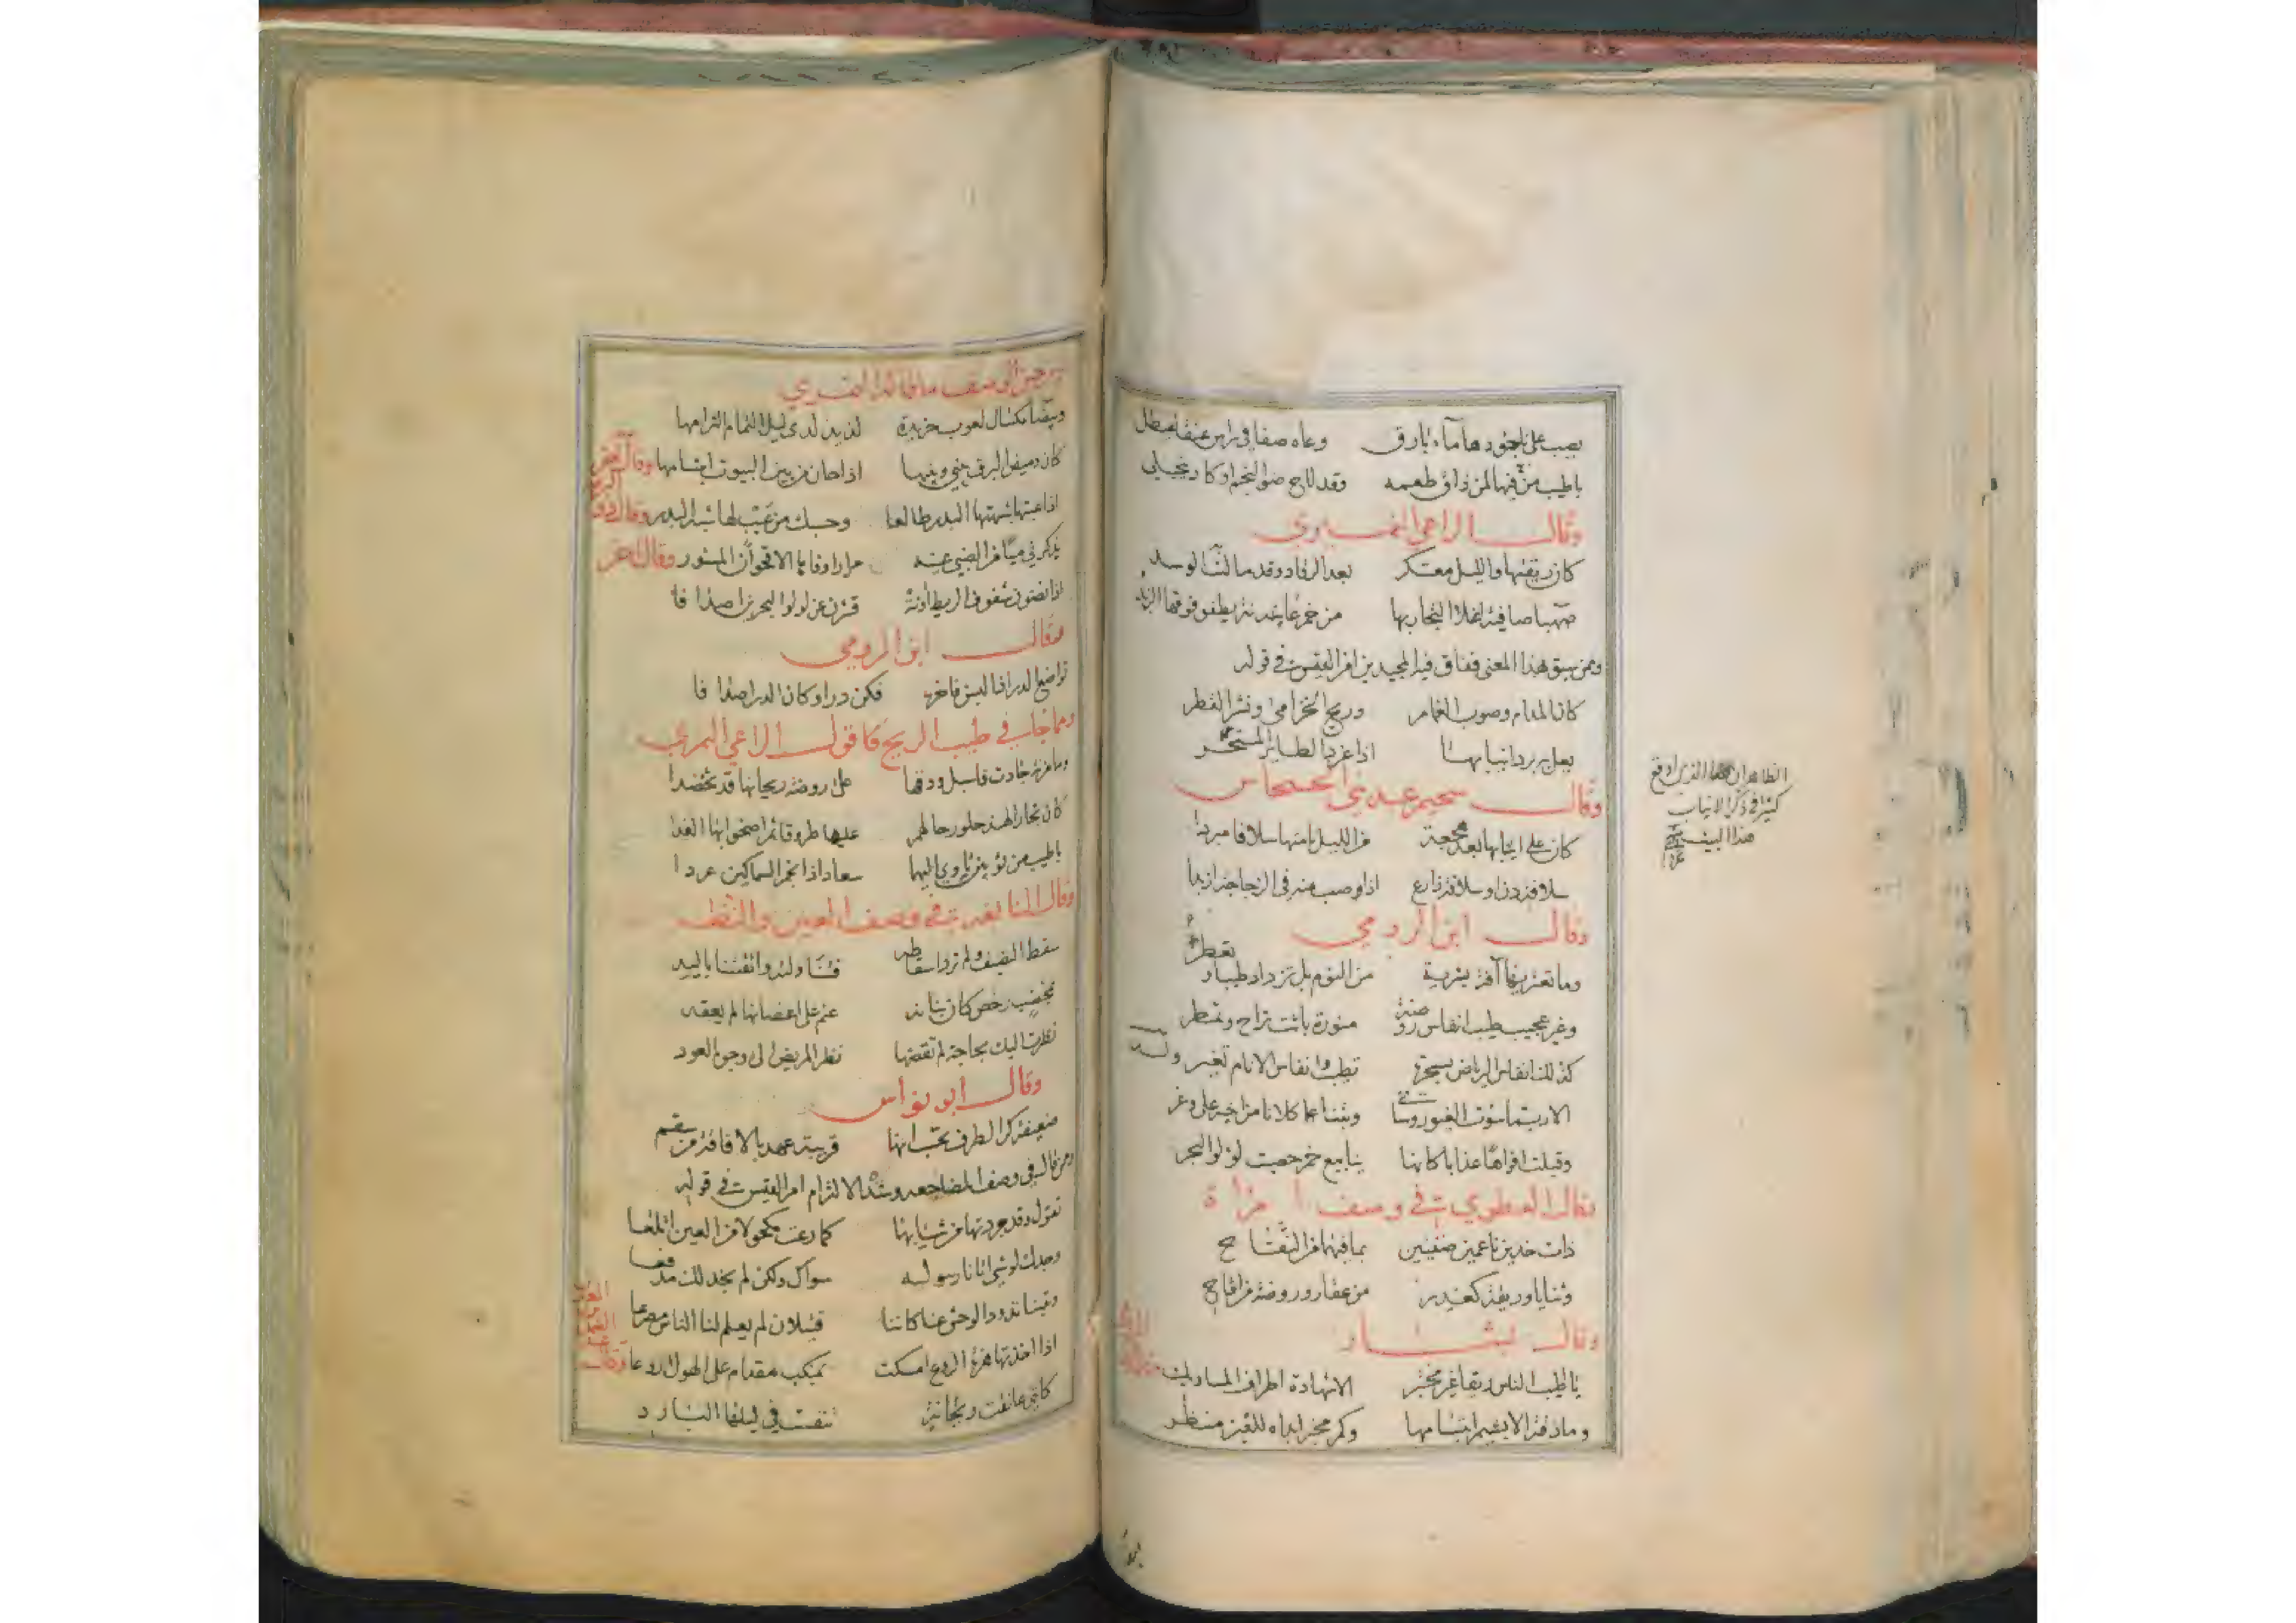 يصب على ناجودها ماء بارق وعاه صفا في راس عنقا عيطل
باطيب من فيها لمن ذاق طعمه وقد لاح ضو النجم او كاد ينجلي
وقال الراعي النميري
كان ريقتها والليل معتكر بعد الرقاد وقد مال
صهبا صافية اغلا التجار بها من خمر عانة يطفو فوقها الزبد
وممن سبق لهذا المعنى ففاق فيه المجيدين امرالقيس في قوله
كان المدام وصوب الغمام وريح الخزامى ونشر القطر
يعل به برد انيابها اذا غرد الطاير المستحر
وقال سحيم عبد بني الحسحاس
كان على انيابها بعد هجعة من الليل نامتها سلافا مبردا
سلافة دن او سلافة ذارع اذا صب منه في الزجاجة ازبدا
وقال ابن الرومي
وما تعتريها آفة بشرية من النوم بل تزداد طيبا و
تعطر
وغير عجيب طيب انفاس روضة منورة باتت تراح وتمطر
كذلك انفاس الرياض بسحرة تطيب وانفاس الانام تغير وله
الا ربما سؤت الغيور وساني وبتنا كلانا من اخيه على وغر
وقبلت افواها عذابا كانها ينابيع خمر حصبت لؤلؤ البحر
وقال العطوي في وصف امراة
ذات خدين ناعمين ضنينين بما فيهما من التفاح
وثنايا وريقة كغدير من عقار وروضة من اقاح
وقال بشار
يا اطيب الناس ريقا غير مختبر الا شهادة اطراف المساويك
وما ذقته الا بشيم ابتسامها وكم مخبر ابداه للعين منظر
الظاهر ان هذا الذي اوقع
كثيرا في ذكر الانياب
هذا البيت
لذيذ لدى ليل التمام التزامها
كان وميض البرق بيني وبينها اذا حان من بين البيوت ابتسامها وقال آخر
اذا عبتها شبهتها البدر طالعا وحسبك من عيب لها شبه البدر
مرارا وفاها الاقحوان المنور وقال آخر
اذا نضون شفوف الريط آونة قشرن عن لولو البحرين اصدافا
وقال ابن الرومي
تواضع الدر اذ البسن فاخره فكن درا وكان الدر اصدافا
ومما جا في طيب الريح قول الراعي النمري
وما مزنة جادت فاسبل ودقها على روضة ريحانها قد تخضدا
كان تجار الهند حلوا رحالهم عليها طروقا ثم اضحوا بها الغدا
باطيب من ثوبين تاوي اليهما سعاد اذا نجم السماكين عردا
وقال النابغة في وصف العين والنظر
سقط النصيف ولم ترد اسقاطه فتناولته واتقتنا باليد
بمخضب رخص كان بنانه عنم على اغصانه لم يعقد
نظرت اليك بحاجة لم تقضها نظر المريض الى وجوه العود
وقال ابو نواس
ضعيفة كر الطرف تحسب انها قريبة عهد بالافاقة من سقم
ومن قال في وصف المضاجعه وشدة الالتزام امرالقيس في قوله
تقول وقد جردتها من ثيابها كما رعت مكحولا من العين اتلعا
وجدك لو شي اتانا رسوله سواك ولكن لم نجد لك مدفعا
وبتنا تذود الوحش عنا كاننا قتيلان لم يعلم لنا الناس مصرعا
اذا اخذتها هزة الروع امسكت بمنكب مقدام على الهول اروعا
كانني عانقت ريحانة تنفست في ليلها البارد